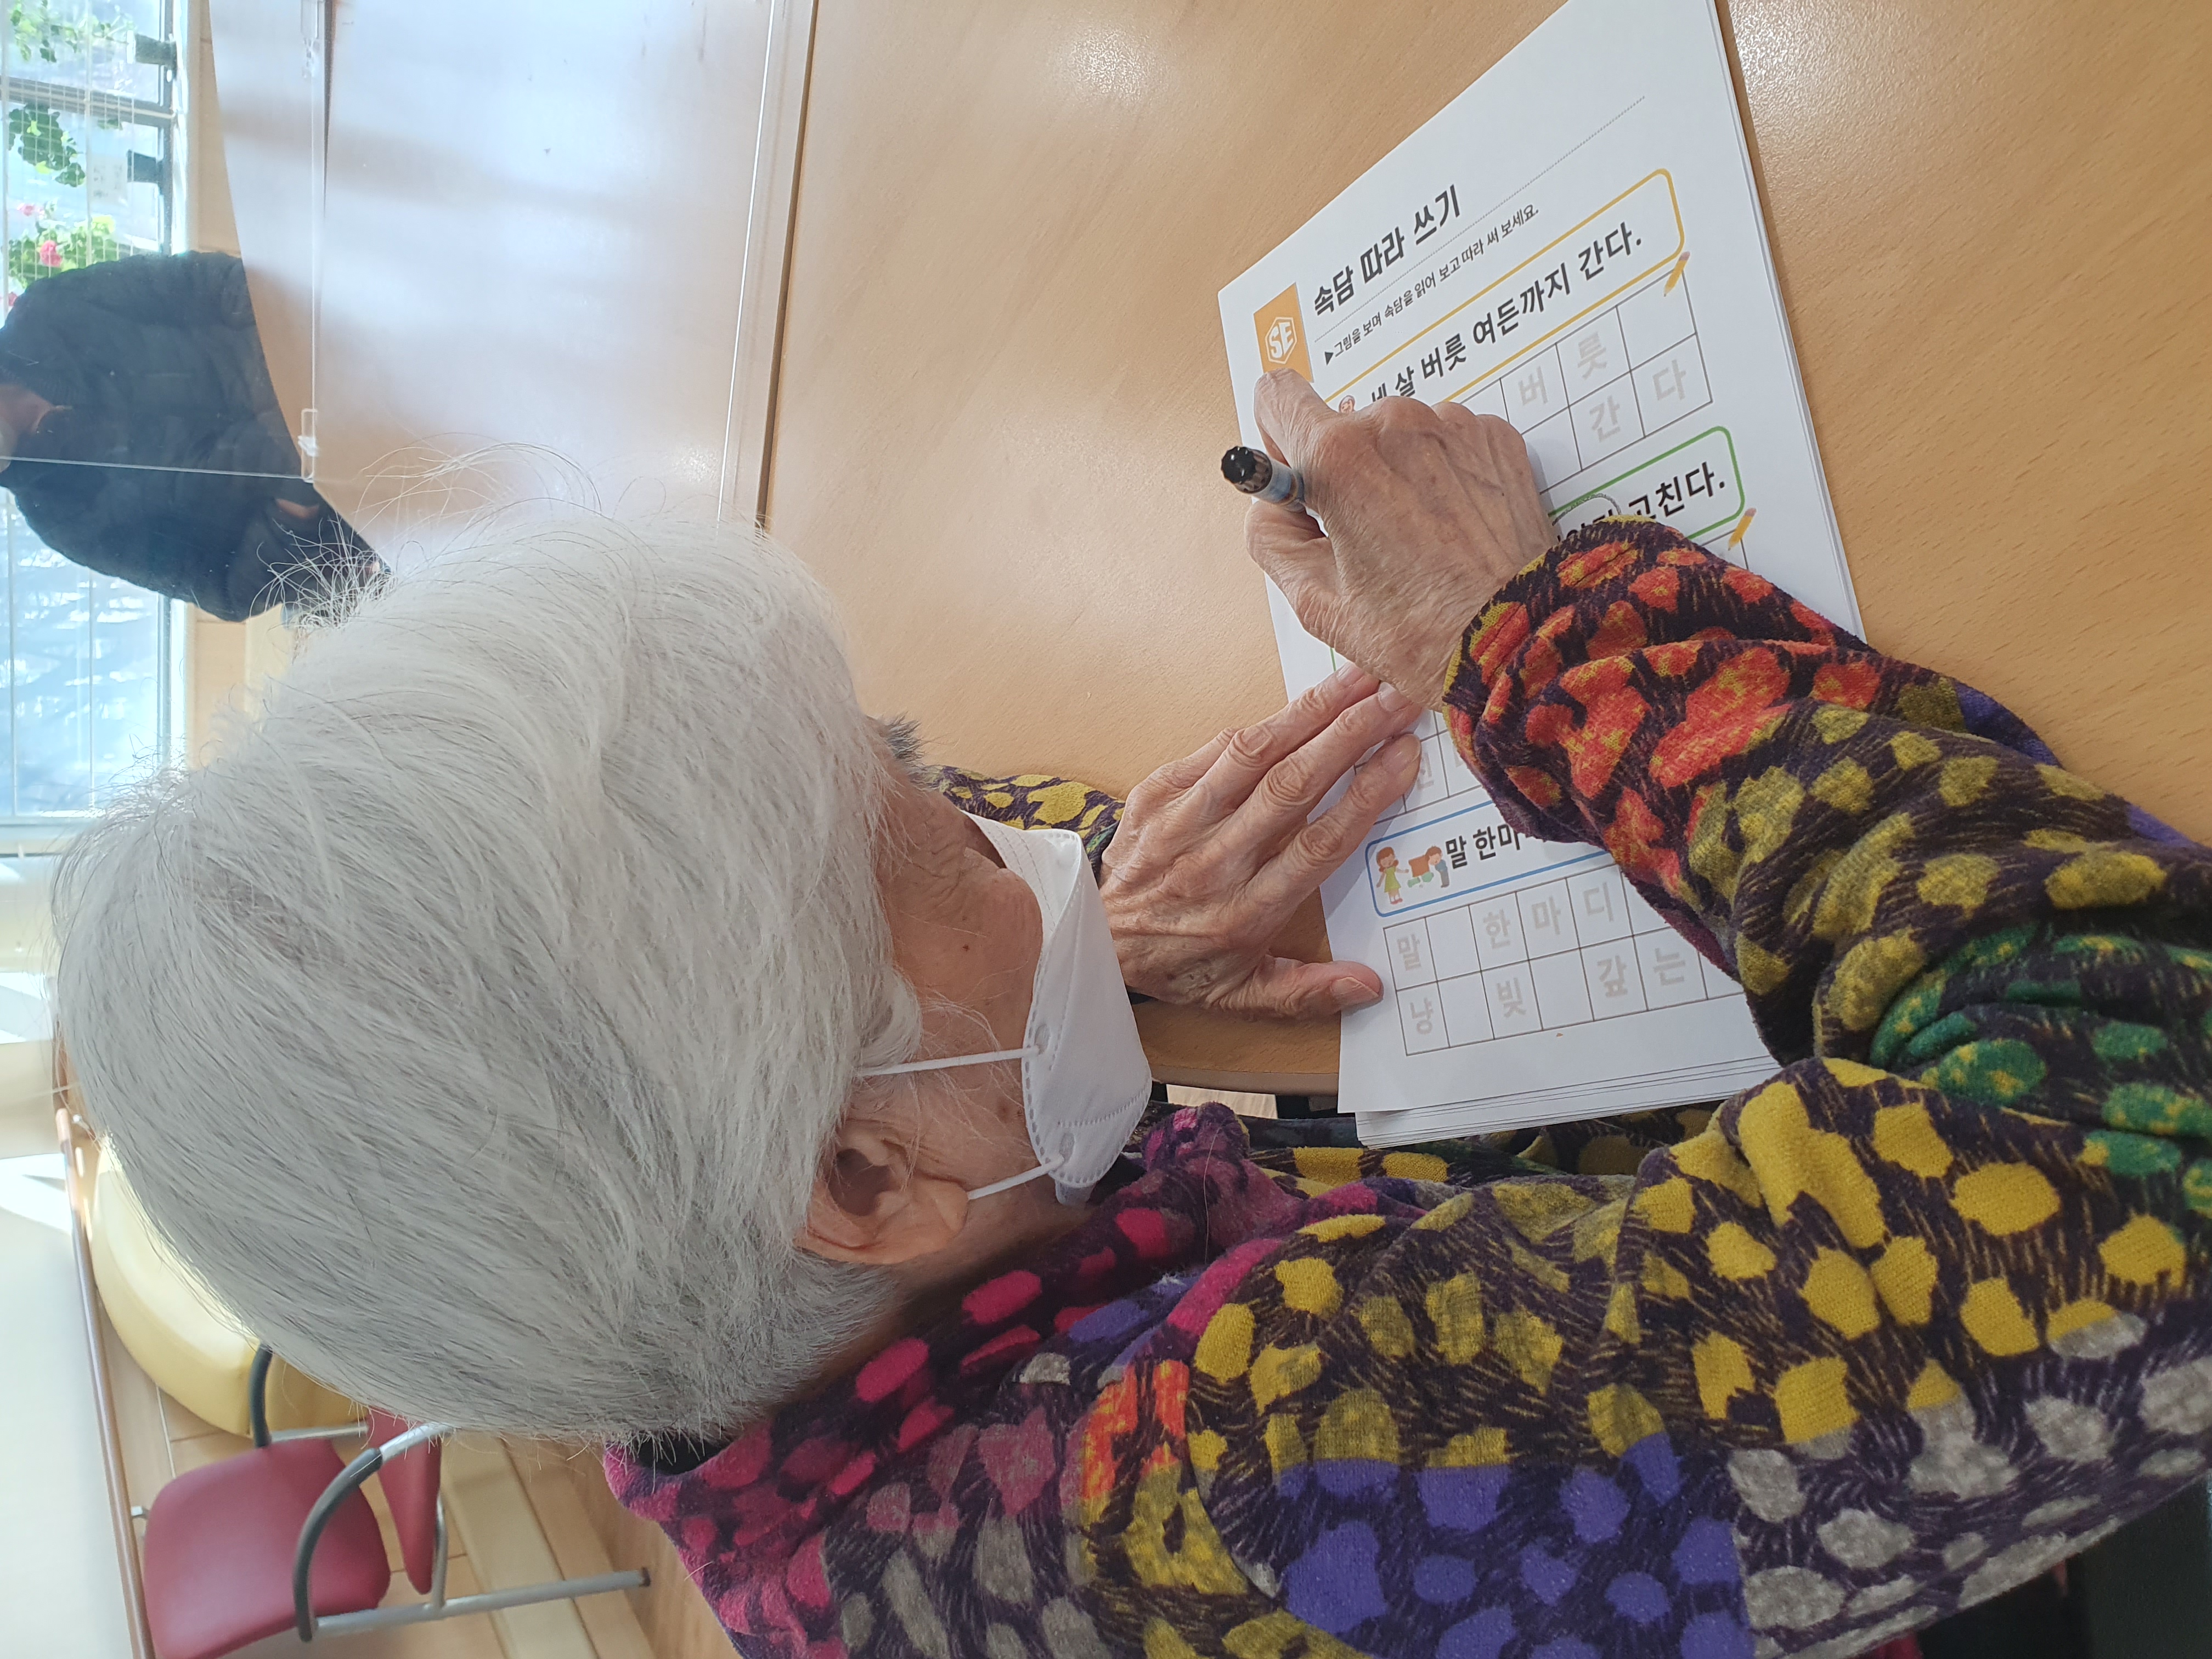 SE
속담 따라 쓰기
▶그림을 보며 속담을 읽어 보고 따라 써 보세요.
세 살 버릇 여든까지 간다.
버 릇
간 다
고친다.
말 한마
말 한 마 디
냥 빚 갚 는